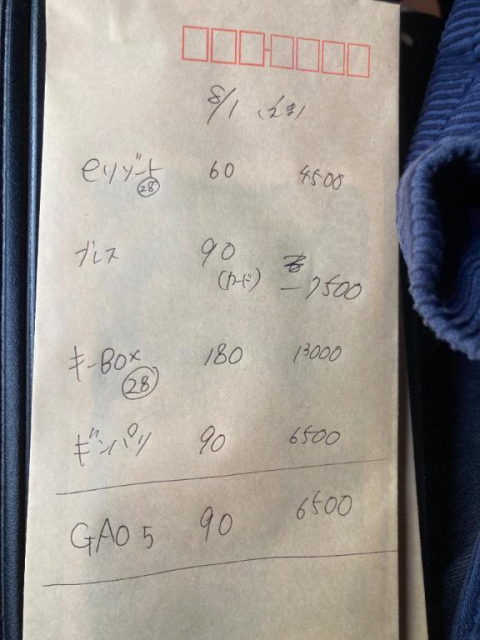 8/1
eリゾート 60 4500
28
ブレス 90
(カード) -7500
キーBOX 180 13000
28
ギンパリ 90 6500
GAO 5 90 6500